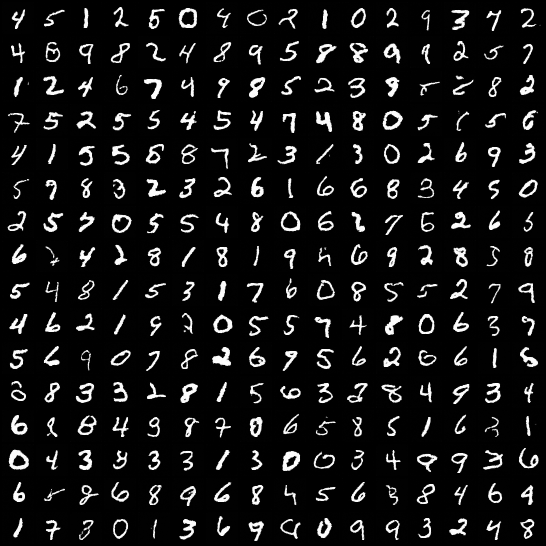 4 5 1 2 5 0 4 0 2 1 0 2 9 3 7 2
4 8 9 8 2 4 8 9 5 8 8 9 9 2 5 7
1 2 4 6 7 4 9 8 5 2 3 9 8 8 2
7 5 2 5 5 4 5 4 7 4 8 0 5 5 6
4 1 5 5 8 8 7 2 3 1 3 0 2 6 9 3
5 9 8 3 2 3 2 6 1 6 6 8 3 4 5 0
2 5 7 0 5 5 4 8 0 6 2 7 5 2 6 5
6 4 2 8 1 8 1 9 4 6 9 2 8 5 8
5 4 8 1 5 3 1 7 6 0 8 5 5 2 7 9
4 6 2 1 9 2 0 5 5 9 4 8 0 6 3 9
5 6 9 0 7 8 2 6 9 5 6 2 0 6 1 6
3 8 3 3 2 8 1 5 6 3 2 8 4 9 3 4
6 8 8 4 9 8 7 8 6 5 8 5 1 6 3 1
0 4 3 3 3 3 1 3 0 0 3 4 9 9 3 6
6 5 8 6 8 9 6 8 4 5 6 3 8 4 6 9
1 7 3 0 1 3 6 9 0 9 9 3 2 4 8